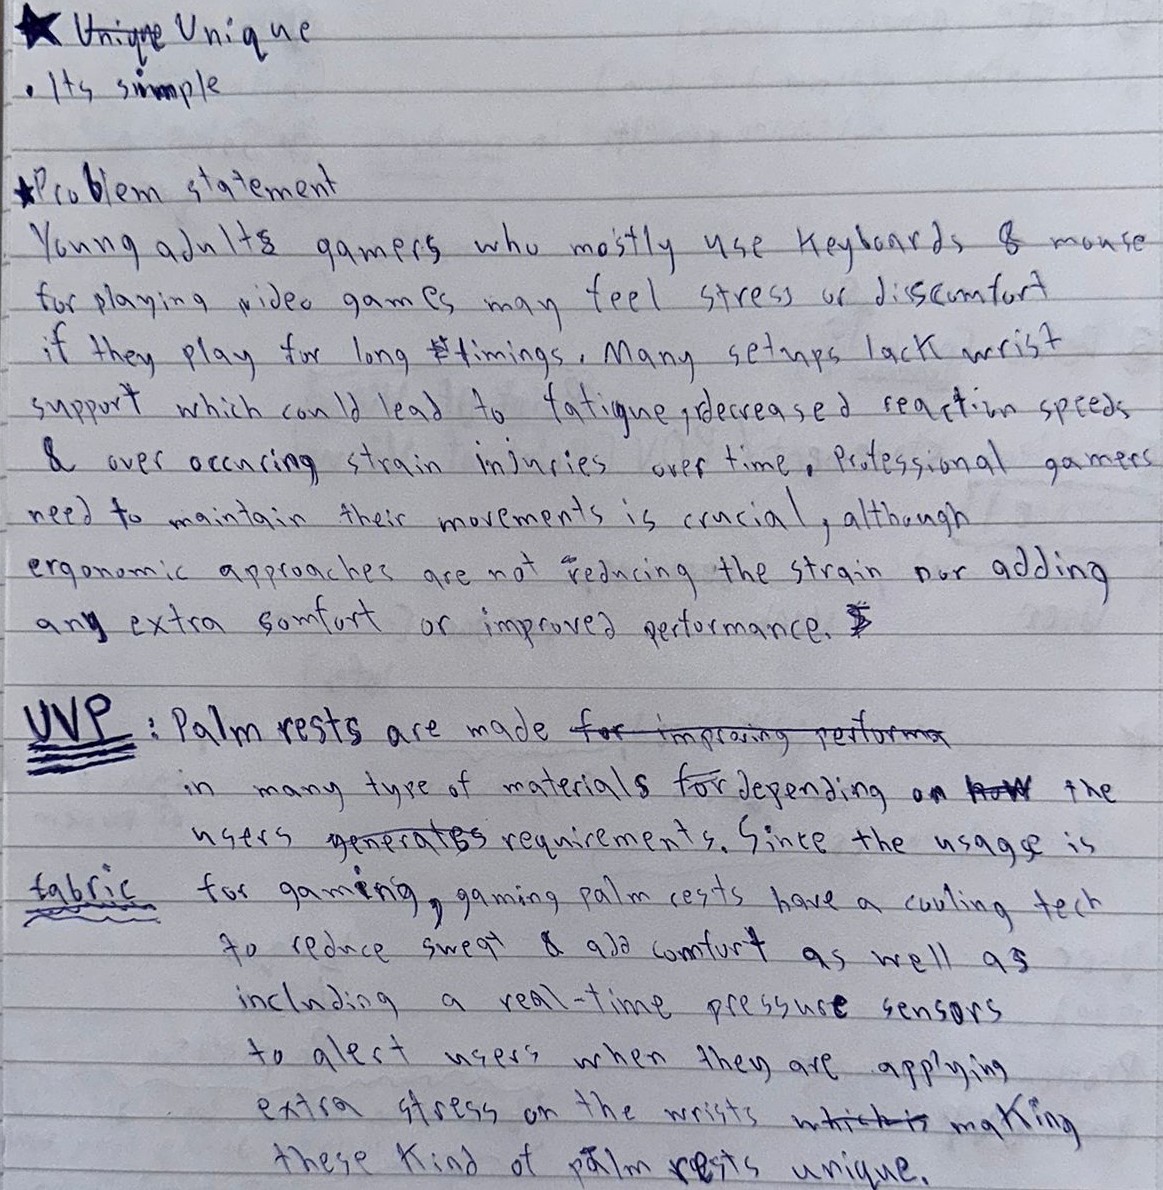 ★ Unique Unique
• Its simple
★Problem statement
Young adults gamers who mostly use Keyboards & mouse
for playing video games may feel stress or disscomfort
if they play for long timings. Many setups lack wrist
support which could lead to fatigue, decreased reaction speeds
& over occuring strain injuries over time. Professional gamers
need to maintain their movements is crucial, although
ergonomic approaches are not reducing the strain nor adding
any extra comfort or improved performance.
UVP : Palm rests are made for improving performa
in many type of materials for depending on how the
users generates requirements. Since the usage is
fabric for gaming, gaming palm rests have a cooling tech
to reduce sweat & add comfort as well as
including a real-time pressure sensors
to alert users when they are applying
extra stress on the wrists which is making
these Kind of palm rests unique.